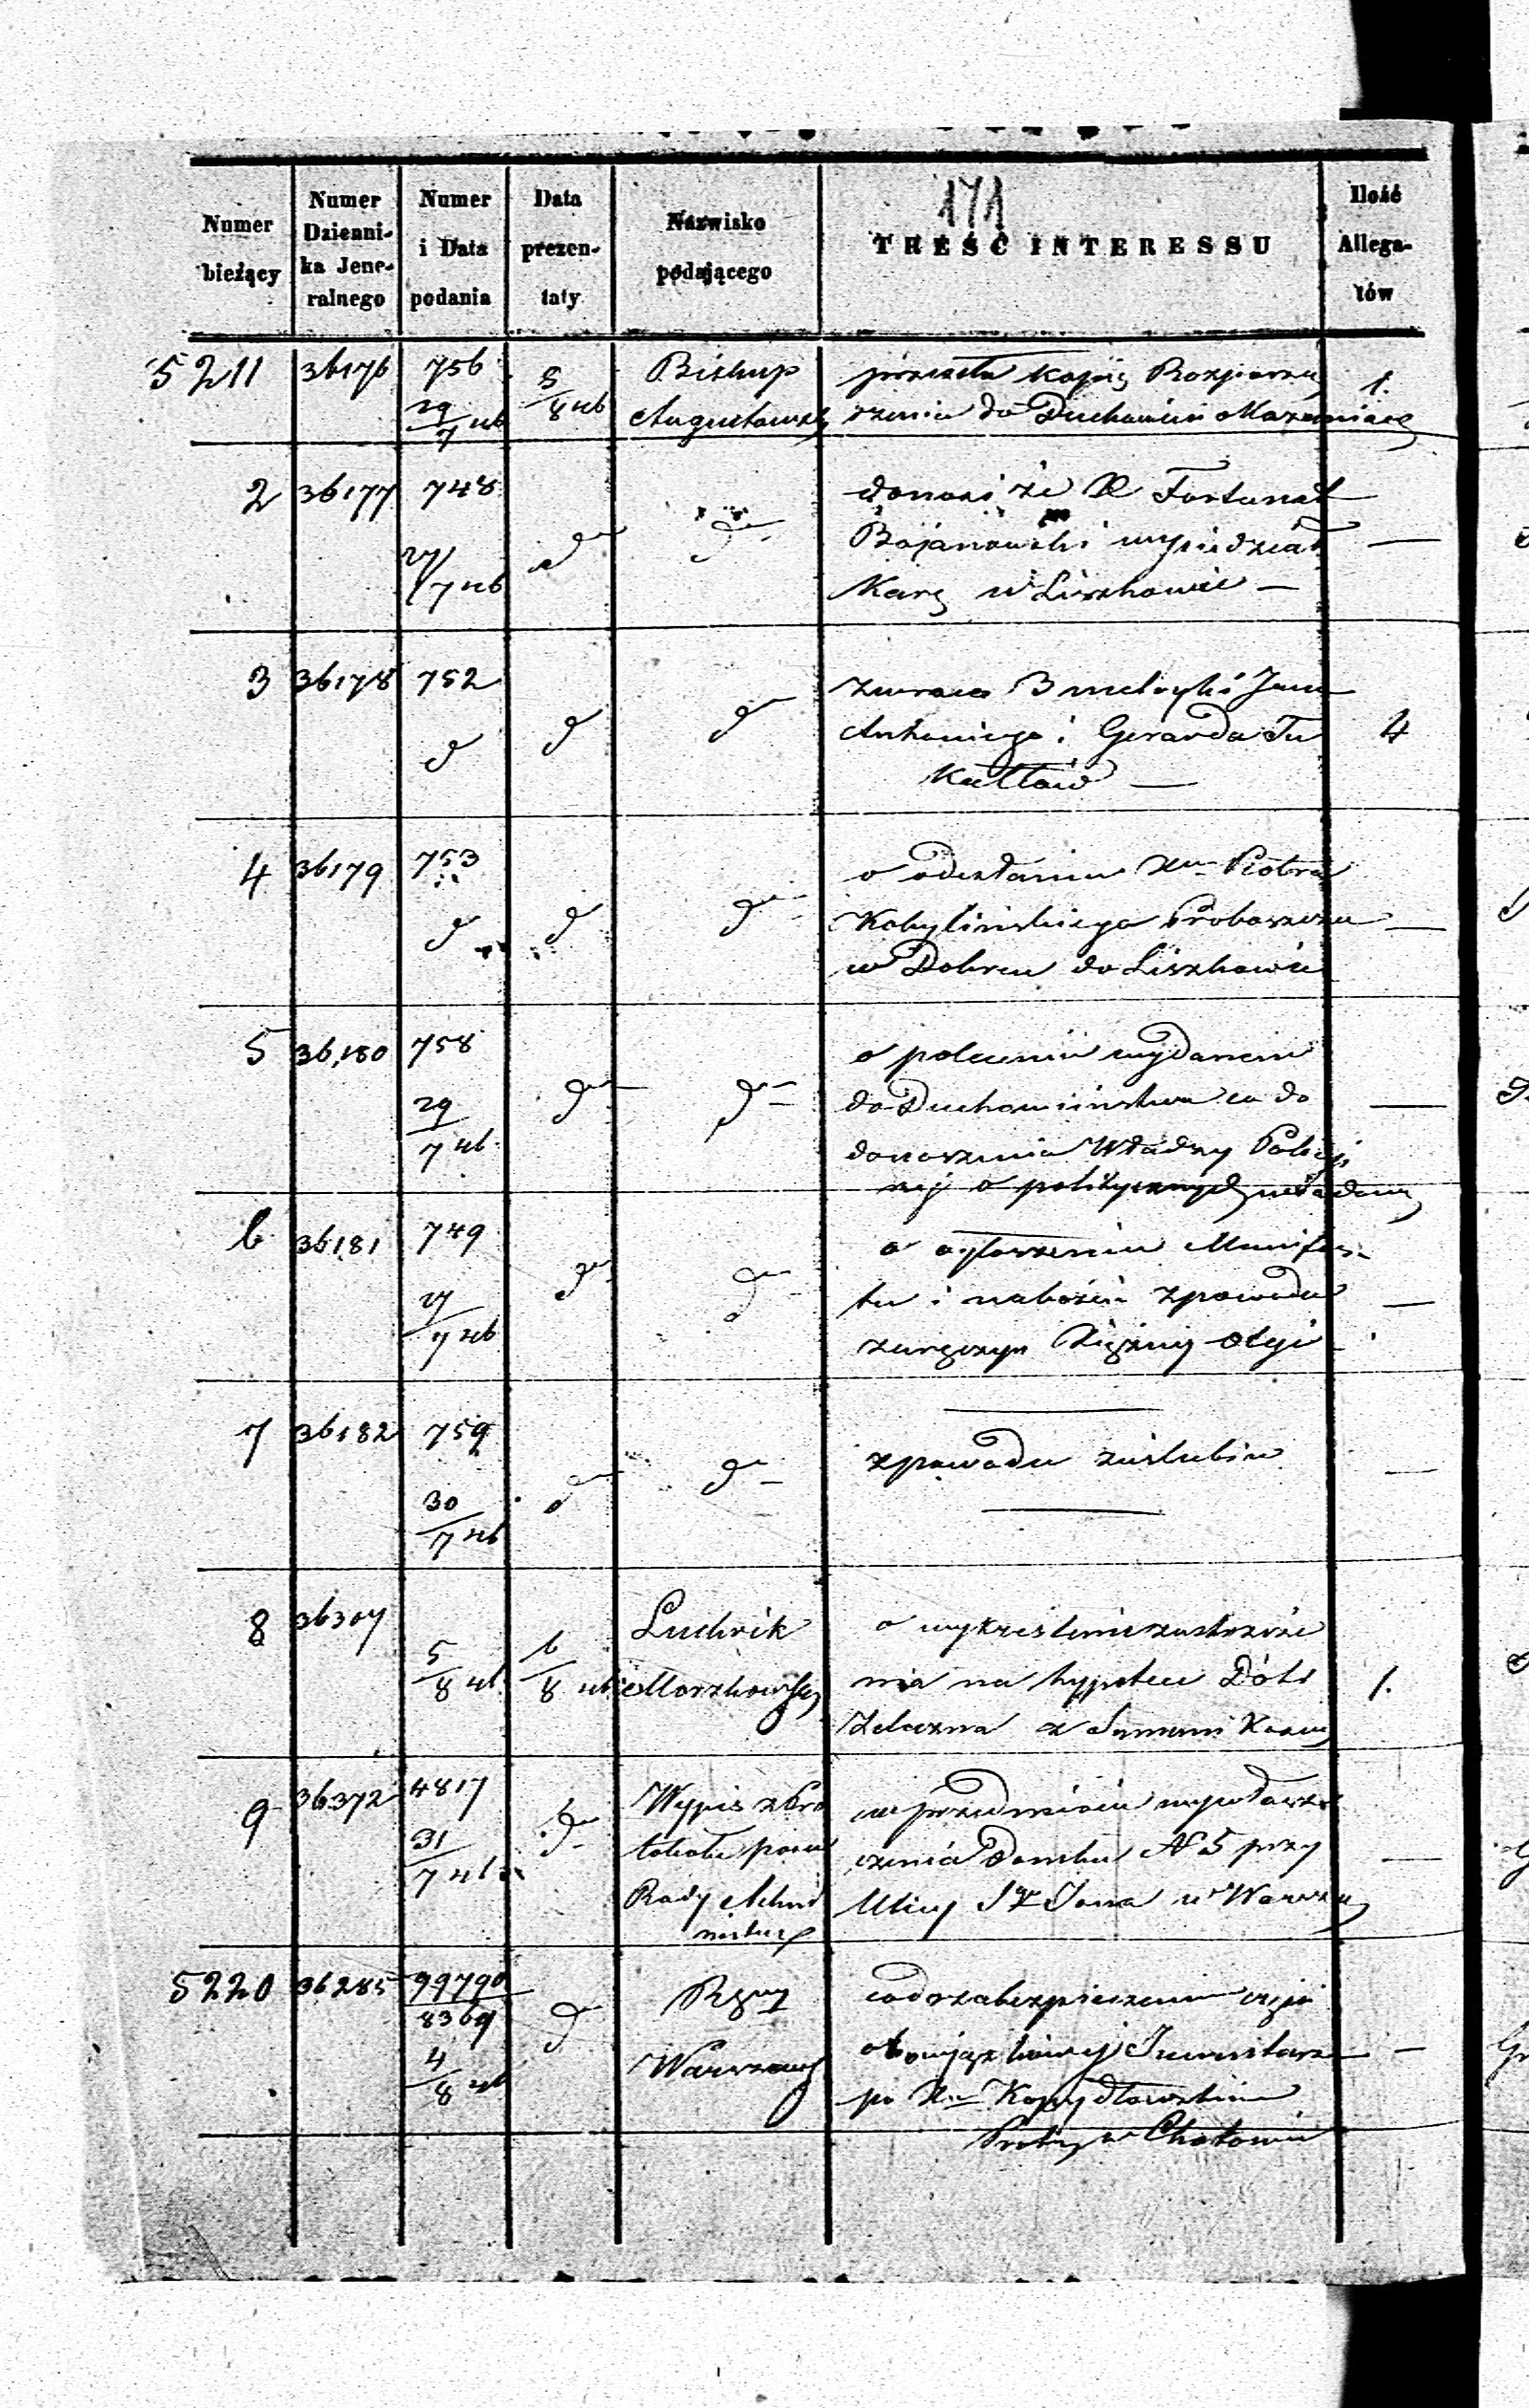 171
Numer bieżący
Numer Dziennika Jeneralnego
Numer i Data podania
Data prezentaty
Nazwisko podającego
TREŚĆ INTERESSU
Ilość Allegatów
5211 36176 756 29/7 46 5/8 46 Biskup Augustowski
przesyła kopię Rozporzą
dzenia do Duchowień
1.
2 36177 748 27/7 46 do do
donosi że X Fortunat
Bojanowski wysiedział
Karę w Liszkowie —
—
3 36178 752 d d do
zwraca 3 metryki Jana
Antoniego i Gerarda Tu
kałłów —
4
4 36179 753 d d do
o odesłaniu Xa Piotra
Kobylińskiego Proboszcza
w Dobrem do Liszkowa
—
5 36180 758 29/7 46 do do
o poleceniu wydanem
do Duchowieństwa co do
donoszenia Władzy Policyj
nej o politycznych
—
6 36181 749 27/7 46 do do
o ogłoszeniu Manifes-
tu i nabożeń zpowodu
zaręczyn Xiężnej Olgi
—
7 36182 759 30/7 46 do do
zpowodu zaślubin
—
8 36307 5/8 46 6/8 46 Ludwik
o wykreślenie zastrzeże
nia na hypotece Dóbr
Żelazna
1.
9 36372 4817 31/7 46 do Wypis z Pro
tokółu posie
Rady Admi
nistrac
w przedmiocie wywłaszc
czenia Domku N 5 przy
Ulicy Sgo Jana w Warsza
—
5220 36285 99790/8369 4/8 46 do Rząd
Warszaws
co do zabezpieczenia
obowiązkowej Inwentarza
po Xu Kopydłowskim
Prob. w Chotowie
—